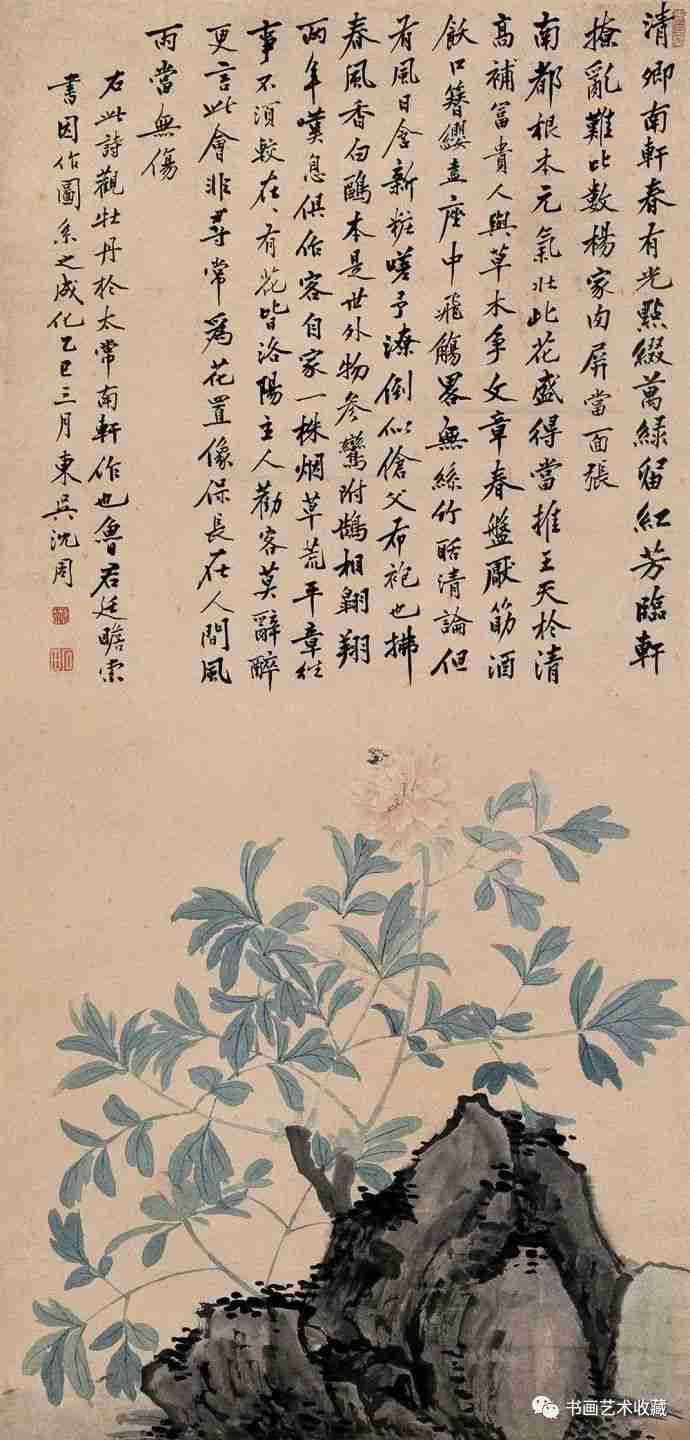 清卿南軒春有光點綴萬綠留紅芳臨軒
撩亂難比數楊家肉屏當面張
南都根本元氣壯此花盛得當推王天於清
高補富貴人與草木爭文章春盤厭飫酒
飲口簪纓盍座中飛觴畧無絲竹聒清論但
有風日含新粧嗟予潦倒似傖父布袍也拂
春風香白鷗本是世外物參鸞附鵠相翱翔
兩年嘆息俱作客自家一株烟草荒平章往
事不須較在在有花皆洛陽主人勸客莫辭醉
更言此會非尋常為花置像保長在人間風
雨當無傷
右此詩觀牡丹於太常南軒作也魯君廷瞻索
書因作圖系之成化乙巳三月東吳沈周
书画艺术收藏